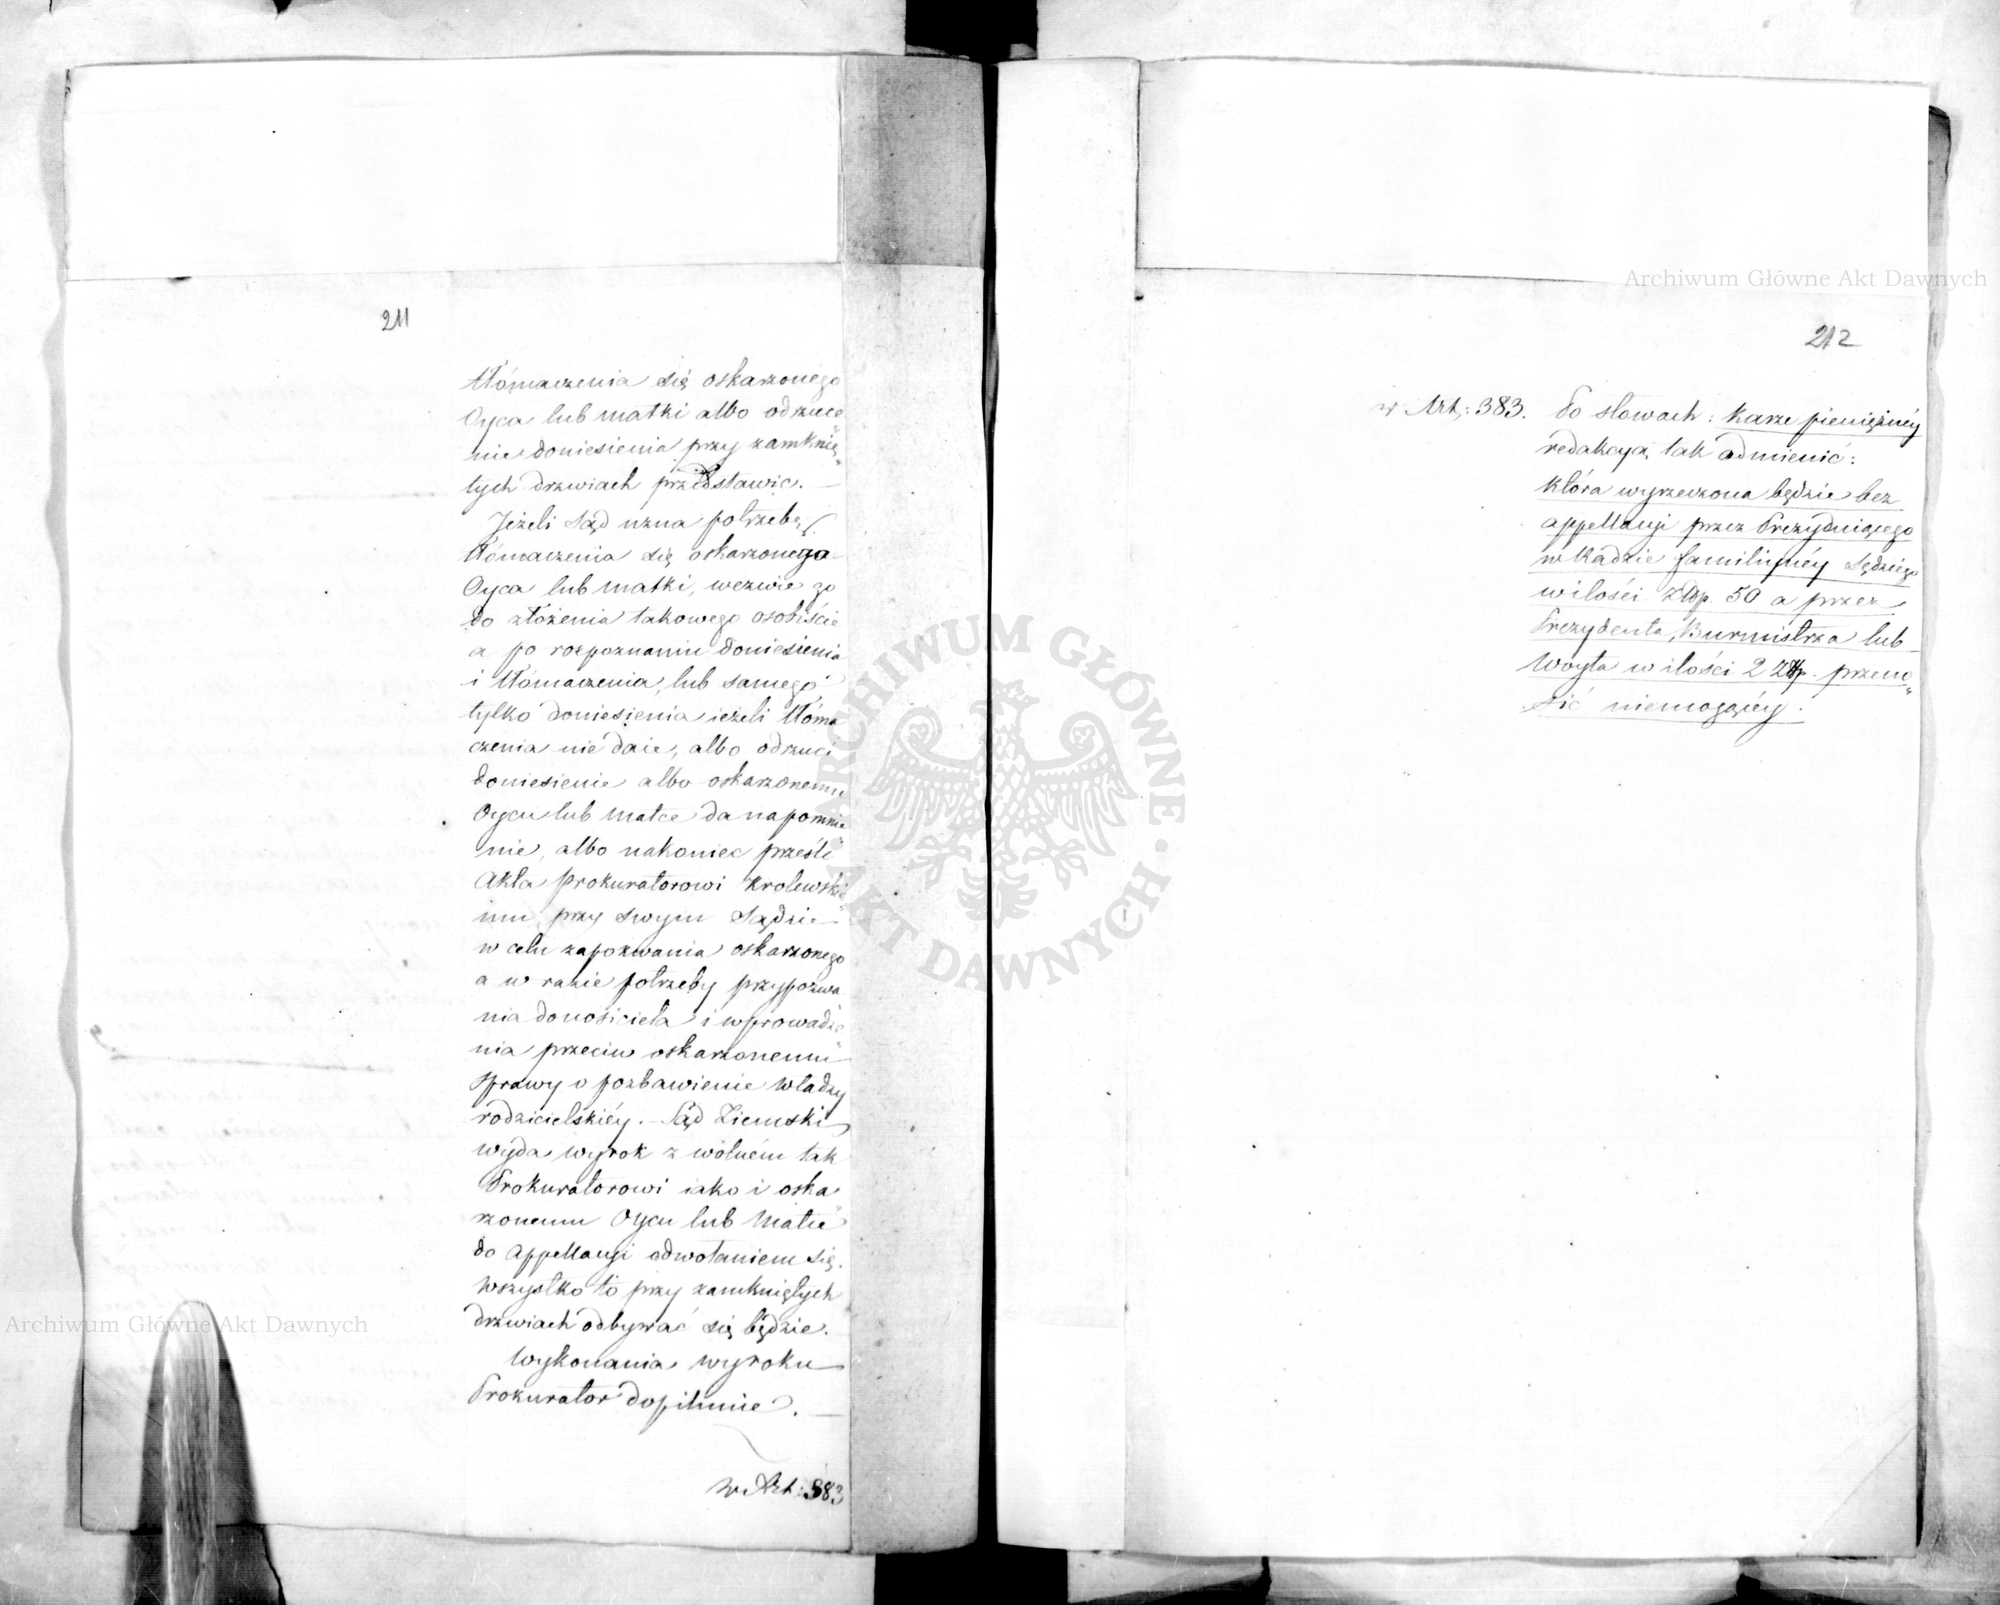 211
tłómaczenia się oskarzonego
Oyca lub matki albo odrzuce„
nie doniesienia przy zamknię„
tych drzwiach przedstawic. —
Jeżeli Sąd uzna potrzebę
tłómaczenia się oskarzonego
Oyca lub matki, wezwie go
do złożenia takowego osobiście
a po rozpoznaniu doniesienia
i tłómaczenia, lub samego
tylko doniesienia ieżeli tłóma
czenia nie daie, albo odrzuci
doniesienie albo oskarzonemu
Oycu lub matce da napomnie„
nie, albo nakoniec prześle
Akta Prokuratorowi Krolewskie„
mu przy swym Sądzie
w celu zapozwania oskarzonego
a w razie potrzeby przypozwa„
nia donosiciela i wprowadze„
nia przeciw oskarzonemu
sprawy o pozbawienie władzy
rodzicielskiéy. Sąd Ziemski
wyda wyrok z wolném tak
Prokuratorowi iako i oska„
rzonemu Oycu lub Matce
do Appellacyi odwołaniem się.
Wszystko to przy zamkniętych
drzwiach odbywać się będzie.
Wykonania wyroku
Prokurator dopilnuie. —
w Art: 383
212
w Art: 383. Po słowach: Karze pieniężnéy
redakcyą tak odmienić:
która wyrzeczona będzie bez
appellacyi przez Prezyduiącego
w Radzie familiynéy Sędziego
w ilości Złłp. 50 a przez
Prezydenta, Burmistrza lub
Woyta w ilości 2 Złłp. przeno„
sić niemogącéy.
Archiwum Główne Akt Dawnych
Archiwum Główne Akt Dawnych
ARCHIWUM GŁÓWNE • AKT DAWNYCH •